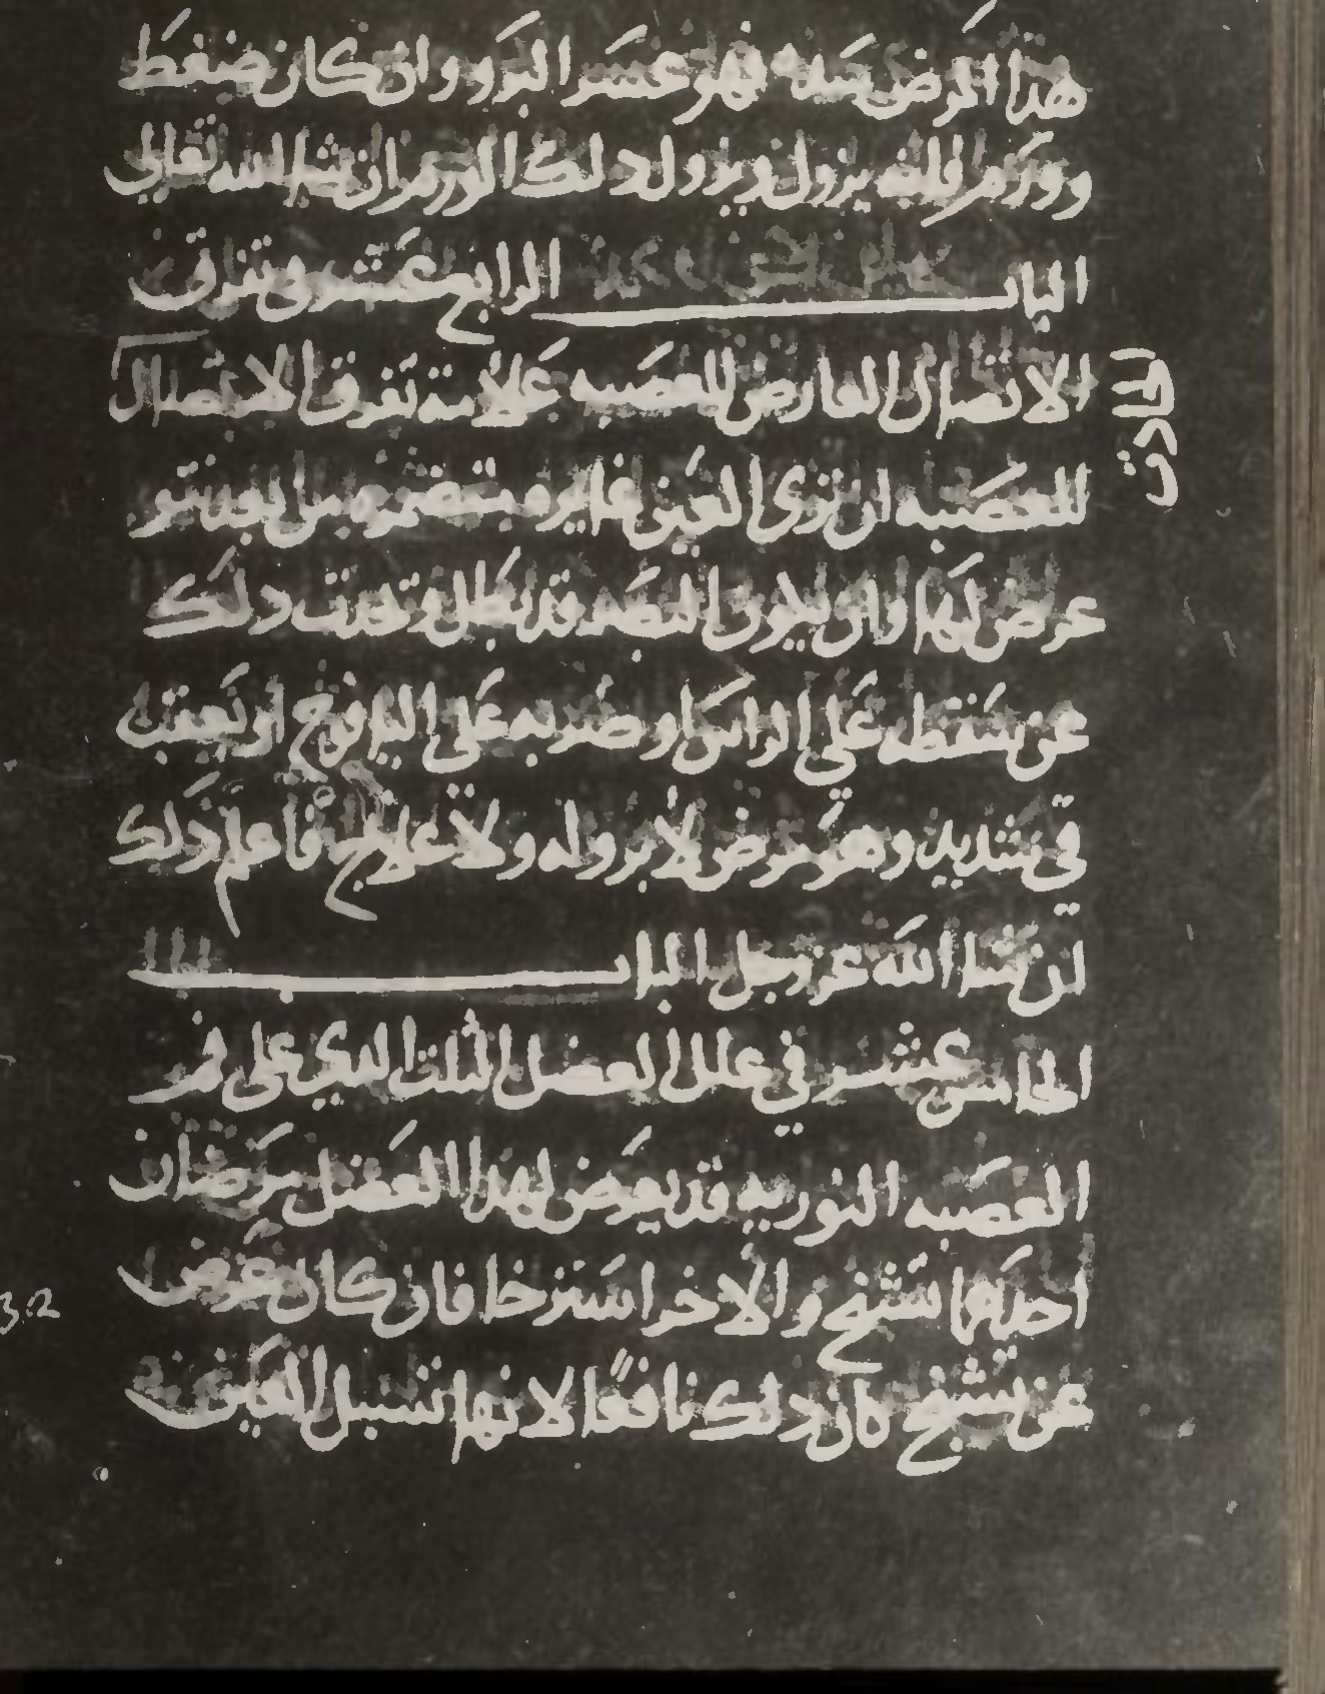 هذا المرض سده فهو عسر البرو وان كان ضغط
وورم فانه يزول ويزول دلك الورم ان شا الله تعالى
الباب الرابع عشر في تفرق
الاتصال العارض للعصبه علامة تفرق الاتصال
للعصبه ان ترى العين غايره من بعد نتو
عرض لها وان يكون البصر قد بطل وتحدث دلك
عن سقطه على الراس او ضربه على اليافوخ او بعقب
قي شديد وهو مرض لا برو له ولا علاج فاعلم ذلك
ان شا الله عز وجل الباب
الخامس عشر في علل العضل الثلث الدي على فم
العصبه النوريه قد يعرض لهدا العضل مرضان
احدهما تشنج والاخر استرخا فان كان عرض
عن تشنج كان دلك نافعا لانها تشيل العين
الحادث